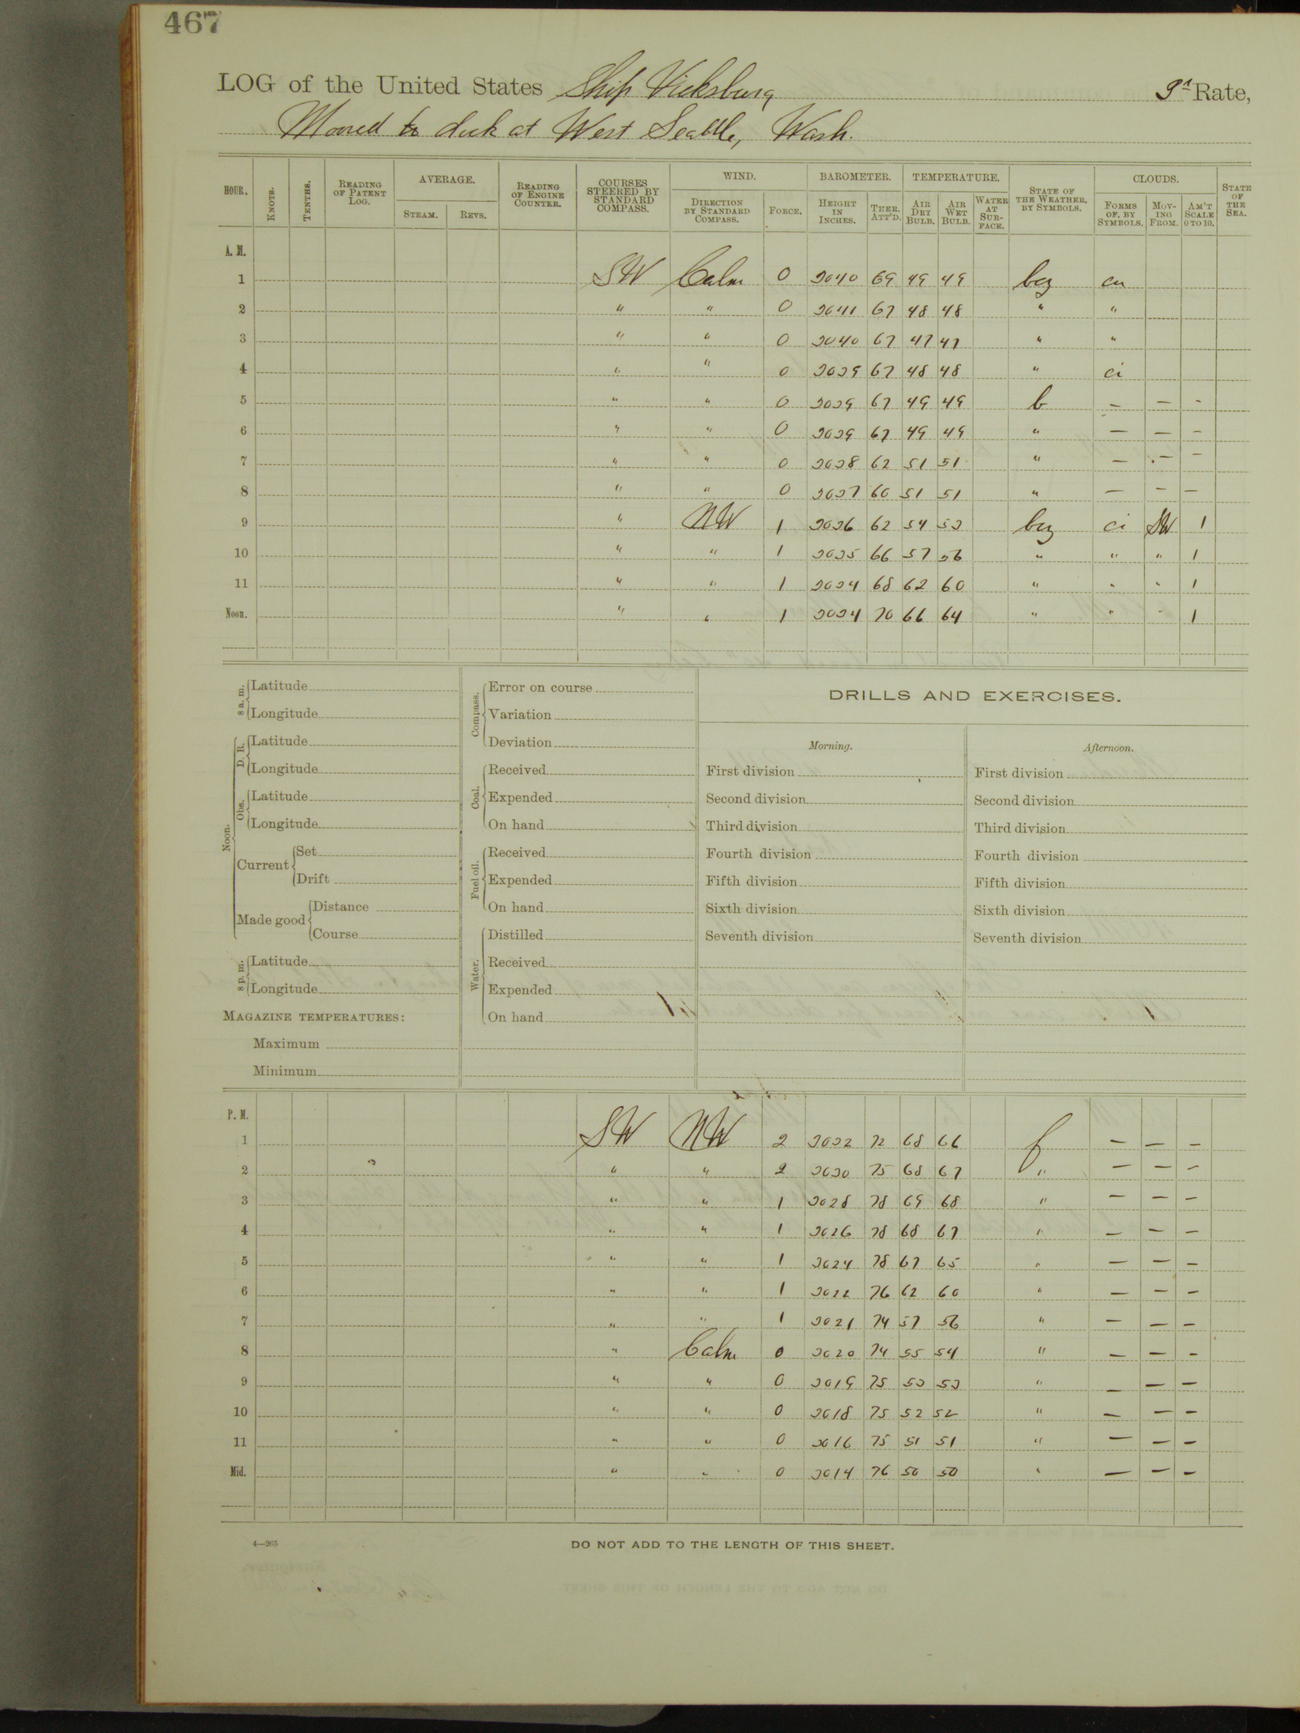 467
LOG of the United States Ship Vicksburg 3d Rate,
Moored to dock at West Seattle, Wash.
HOUR. KNOTS. TENTHS. READING OF PATENT LOG. AVERAGE. STEAM. REVS. READING OF ENGINE COUNTER. COURSES STEERED BY STANDARD COMPASS. WIND. DIRECTION BY STANDARD COMPASS. FORCE. BAROMETER. HEIGHT IN INCHES. THER. ATT'D. TEMPERATURE. AIR DRY BULB. AIR WET BULB. WATER AT SURFACE. STATE OF THE WEATHER, BY SYMBOLS. CLOUDS. FORMS OF, BY SYMBOLS. MOVING FROM. AM'T SCALE 0 TO 10. STATE OF THE SEA.
A. M.
1 SW Calm 0 3040 69 49 49 bcz cu
2 " " 0 3041 67 48 48 " "
3 " " 0 3040 67 47 47 " "
4 " " 0 3039 67 48 48 " ci
5 " " 0 3039 67 49 49 b — — -
6 " " 0 3039 67 49 49 " — — -
7 " " 0 3038 62 51 51 " — — -
8 " " 0 3037 60 51 51 " — - —
9 " NW 1 3036 62 54 53 bcz ci SW 1
10 " " 1 3035 66 57 56 " " " 1
11 " " 1 3034 68 62 60 " " " 1
Noon. " " 1 3034 70 66 64 " " " 1
8 a. m. Latitude
Longitude
Noon. D. R. Latitude
Longitude
Obs. Latitude
Longitude
Current Set
Drift
Made good Distance
Course
8 p. m. Latitude
Longitude
MAGAZINE TEMPERATURES:
Maximum
Minimum
Compass. Error on course
Variation
Deviation
Coal. Received
Expended
On hand
Fuel oil. Received
Expended
On hand
Water. Distilled
Received
Expended
On hand
DRILLS AND EXERCISES.
Morning.
First division
Second division
Third division
Fourth division
Fifth division
Sixth division
Seventh division
Afternoon.
First division
Second division
Third division
Fourth division
Fifth division
Sixth division
Seventh division
P. M.
1 SW NW 2 3032 72 68 66 f — — -
2 " " 2 3030 75 68 67 " — — -
3 " " 1 3028 78 69 68 " — — -
4 " " 1 3026 78 68 67 " — — —
5 " " 1 3024 78 67 65 " — — —
6 " " 1 3022 76 62 60 " — — —
7 " " 1 3021 74 57 56 " — — —
8 " Calm 0 3020 74 55 54 " — — -
9 " " 0 3019 75 53 53 " — — —
10 " " 0 3018 75 52 52 " — — —
11 " " 0 3016 75 51 51 " — — —
Mid. " " 0 3014 76 50 50 " — — —
4—265
DO NOT ADD TO THE LENGTH OF THIS SHEET.